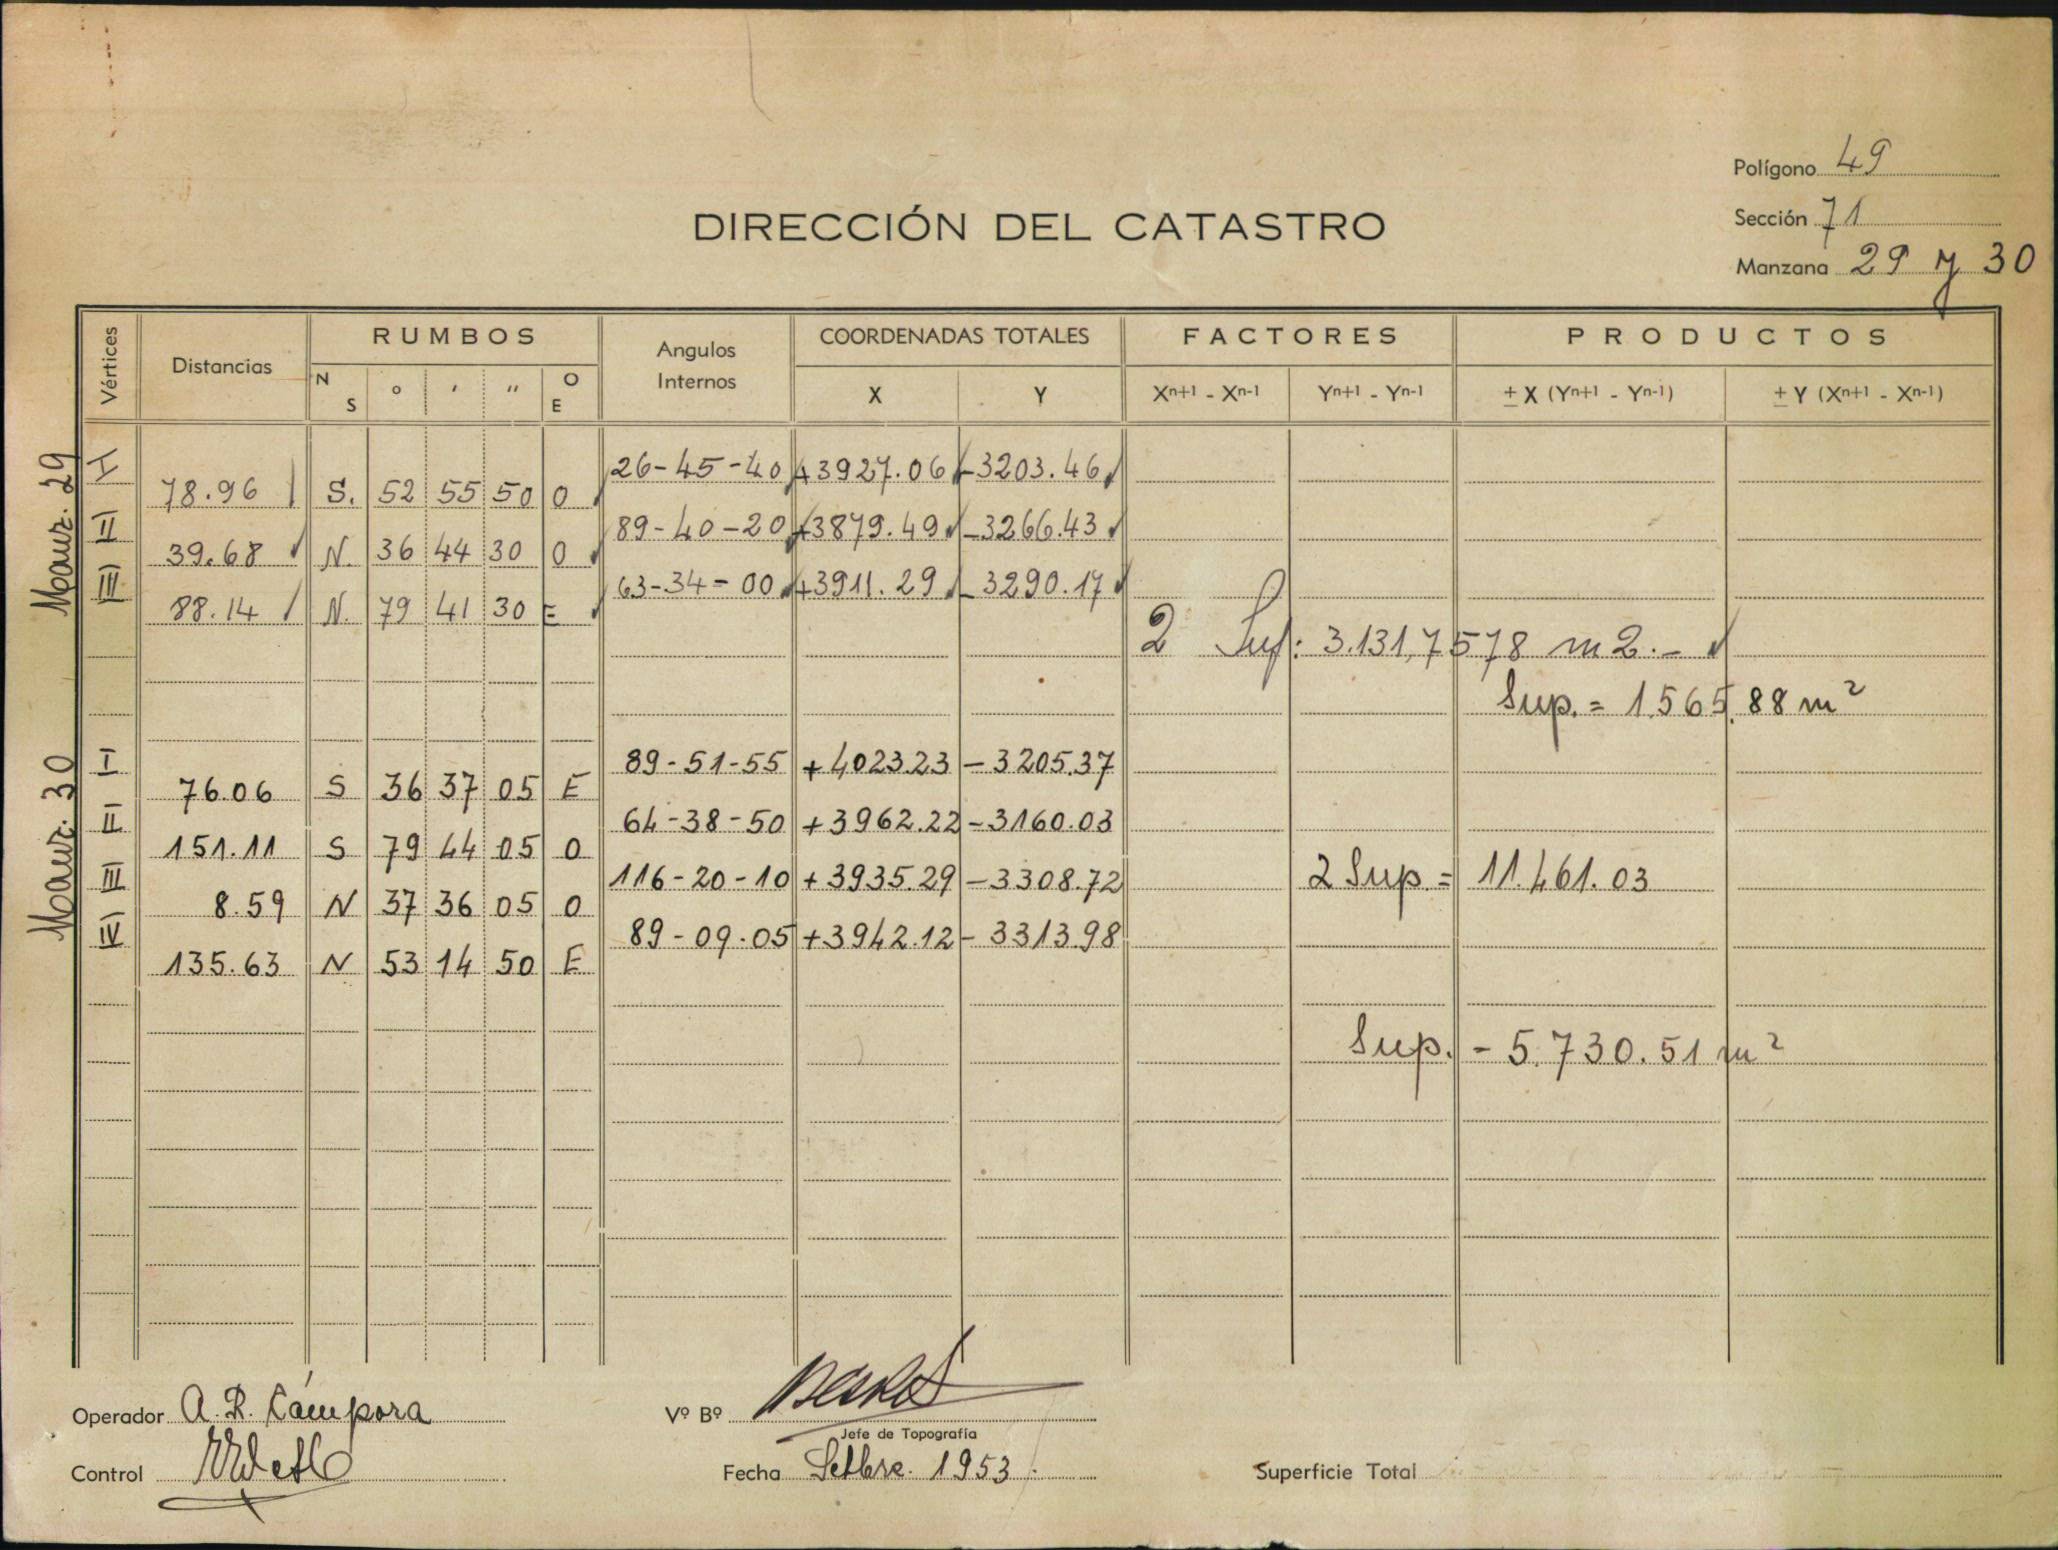 Polígono 49
Sección 71
DIRECCIÓN DEL CATASTRO
Manzana 29 y 30
Vértices Distancias RUMBOS Angulos Internos COORDENADAS TOTALES FACTORES PRODUCTOS
N S ° ' '' O E X Y Xn+1 - Xn-1 Yn+1 - Yn-1 ± X (Yn+1 - Yn-1) ± Y (Xn+1 - Xn-1)
Manz. 29
I 26-45-40 +3927.06 -3203.46
78.96 S. 52 55 50 O
II 89-40-20 +3879.49 -3266.43
39.68 N. 36 44 30 O
III 63-34-00 +3911.29 -3290.17
88.14 N. 79 41 30 E
2 Sup: 3.131,7578 m2.-
Sup. = 1.565.88 m²
Manz. 30
I 89-51-55 +4023.23 -3205.37
76.06 S 36 37 05 E
II 64-38-50 +3962.22 -3160.03
151.11 S 79 44 05 O
III 116-20-10 +3935.29 -3308.72 2 Sup = 11.461.03
8.59 N 37 36 05 O
IV 89-09-05 +3942.12 -3313.98
135.63 N 53 14 50 E
Sup. - 5.730.51 m²
Operador A. R. Cámpora Vº Bº
Jefe de Topografía
Control Fecha Setbre. 1953. Superficie Total